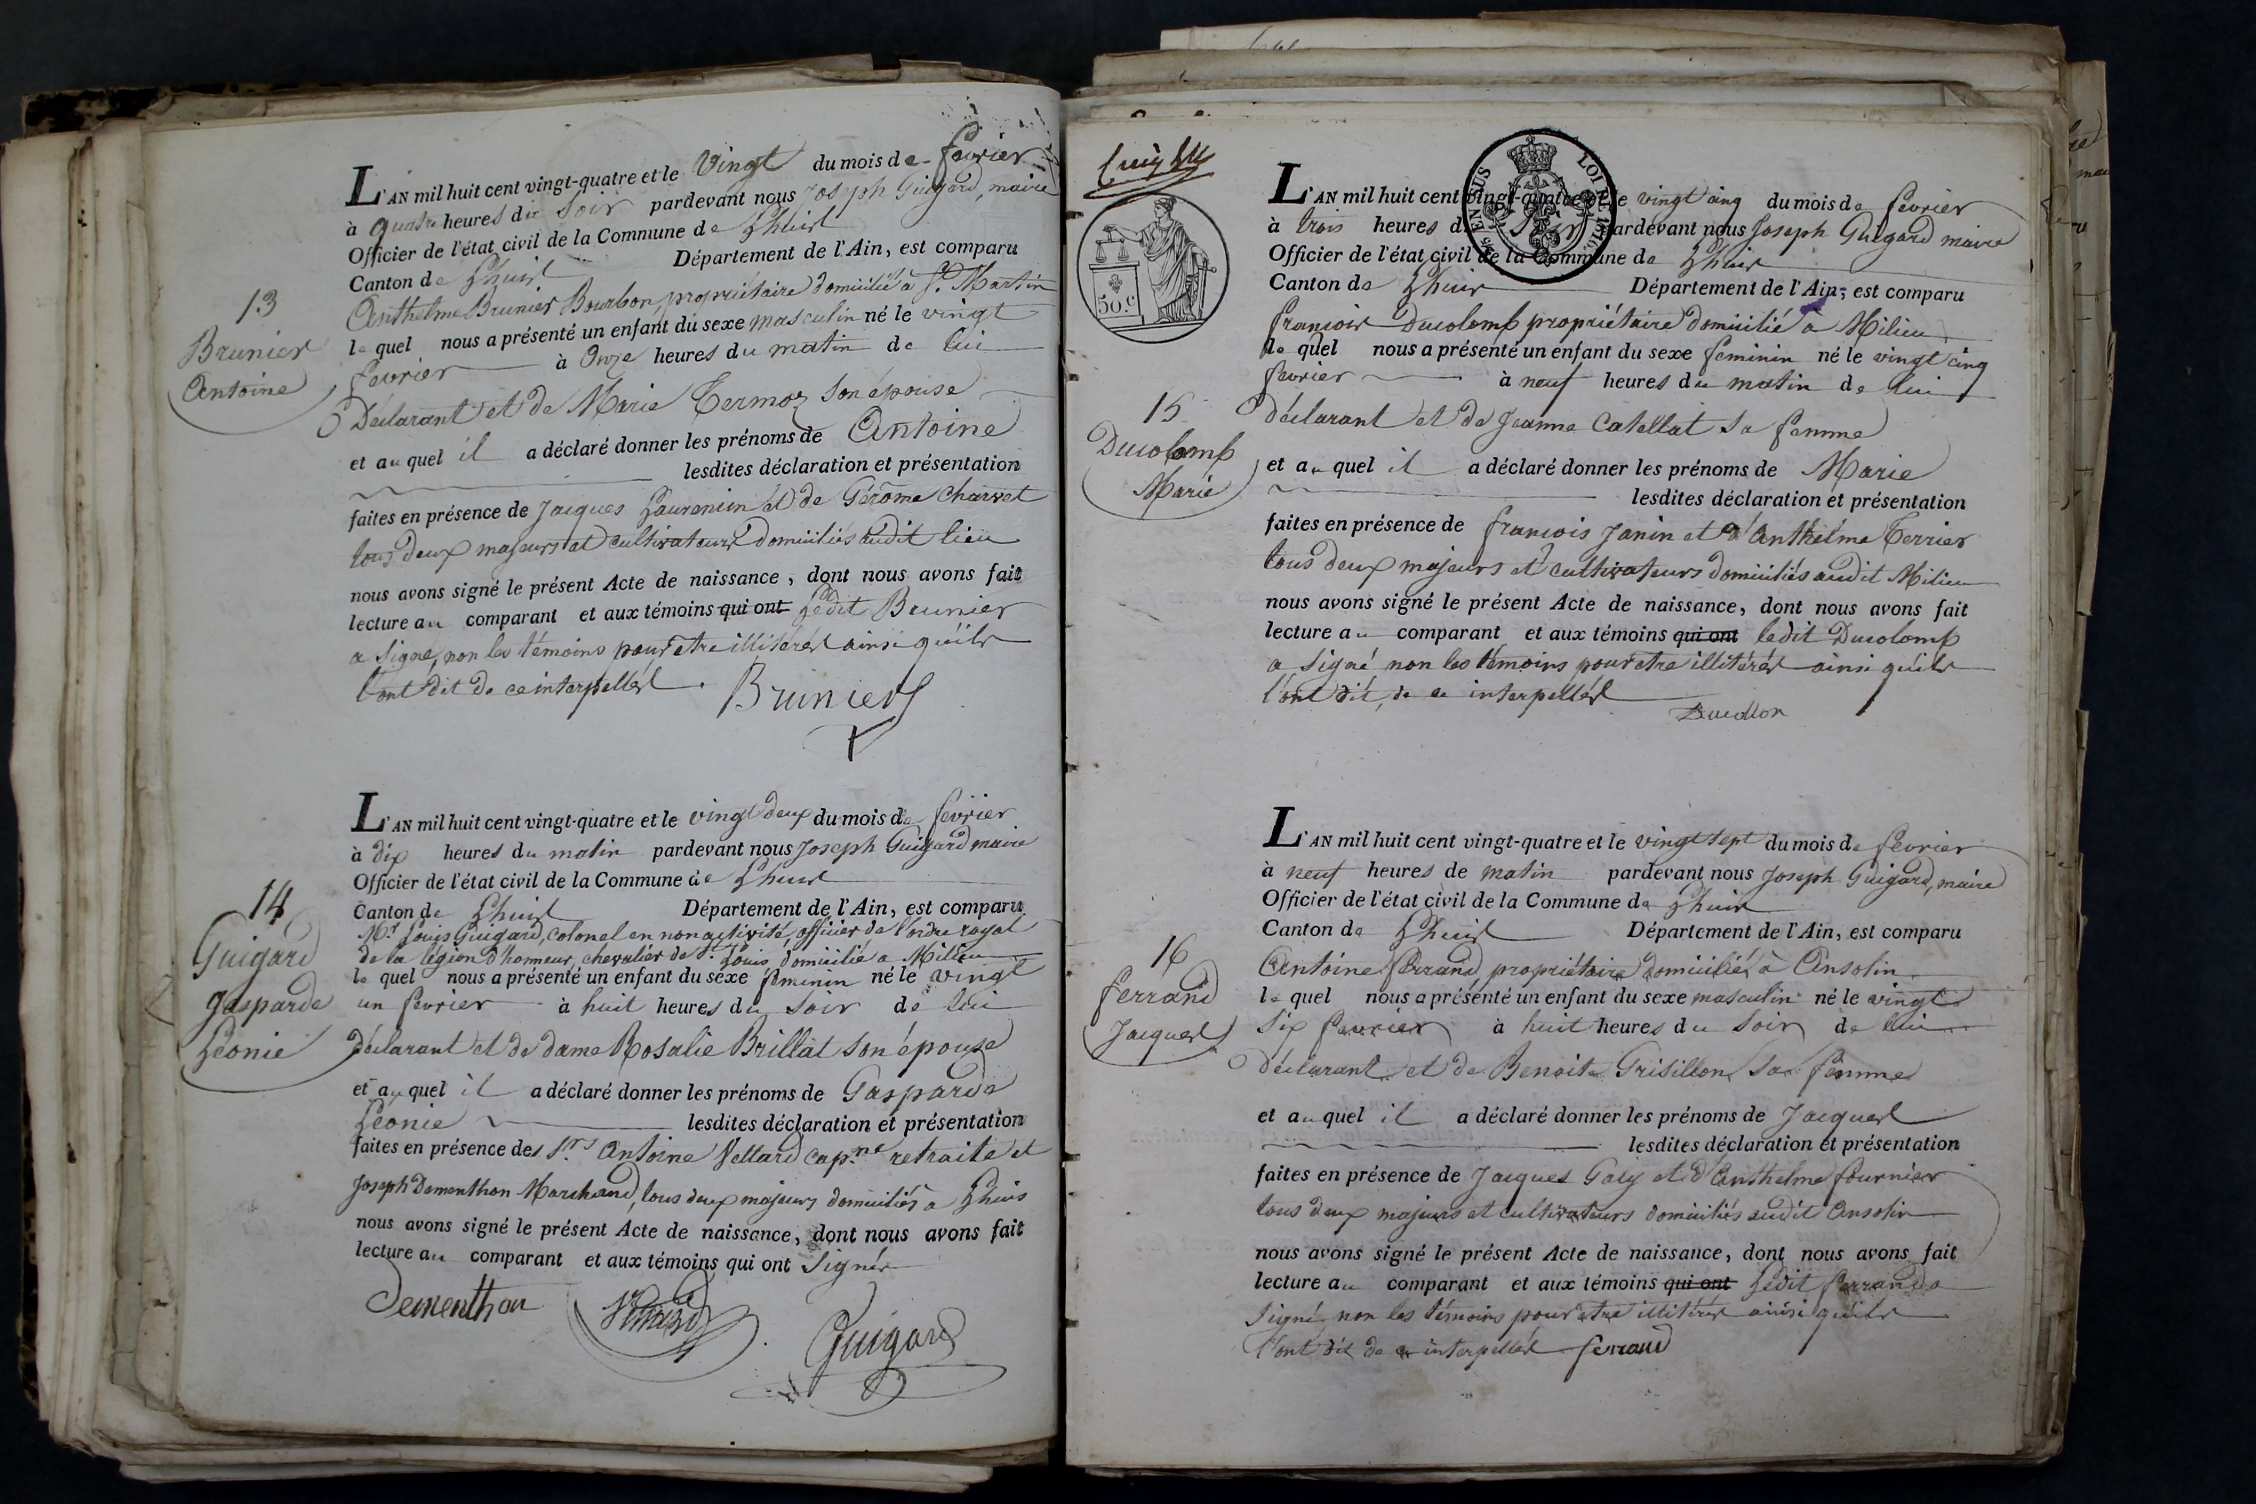 L'AN mil huit cent vingt-quatre et le vingt du mois de février
à quatre heures du soir pardevant nous Joseph Guigard, maire
Officier de l'état civil de la Commune de Lhuis
Canton de Lhuis Département de l'Ain, est comparu
Anthelme Brunier Bourbon, propriétaire domicilié à St. Martin
le quel nous a présenté un enfant du sexe masculin né le vingt
février à onze heures du matin de lui
Déclarant et de Marie Termoz son épouse
et au quel il a déclaré donner les prénoms de Antoine
lesdites déclaration et présentation
faites en présence de Jacques Laurencin et de Gérome Charvet
tous deux majeurs et cultivateurs domiciliés audit lieu
nous avons signé le présent Acte de naissance, dont nous avons fait
lecture au comparant et aux témoins qui ont Ledit Brunier
a signé, non les témoins pour etre illitérés ainsi qu'ils
l'ont dit de ce interpellés.
Bruniers
13
Brunier
Antoine
L'AN mil huit cent vingt-quatre et le vingt deux du mois de février
à dix heures du matin pardevant nous Joseph Guigard maire
Officier de l'état civil de la Commune de Lhuis
Canton de Lhuis Département de l'Ain, est comparu
Mr. Louis Guigard, colonel en non activité, officier de l'ordre royal
de la légion d'honneur, chevalier de St. Louis, domicilié a Milieu
le quel nous a présenté un enfant du sexe féminin né le vingt
un février à huit heures du soir de lui
Déclarant et de dame Rosalie Brillat son épouse
et au quel il a déclaré donner les prénoms de Gasparde
Léonie lesdites déclaration et présentation
faites en présence des Srs Antoine Vettard cap.ne retraité et
Joseph Dementhon Marchand, tous deux majeurs domiciliés à Lhuis
nous avons signé le présent Acte de naissance, dont nous avons fait
lecture au comparant et aux témoins qui ont signés
Dementhon
Guigard
14
Guigard
gasparde
Léonie
50.c
LOI DE 1816.
EN SUS
L'AN mil huit cent vingt-quatre et le vingt cinq du mois de février
à trois heures du soir pardevant nous Joseph Guigard maire
Officier de l'état civil de la Commune de Lhuis
Canton de Lhuis Département de l'Ain, est comparu
françois Ducolomb propriétaire domicilié à Milieu
le quel nous a présenté un enfant du sexe feminin né le vingt cinq
février à neuf heures du matin de lui
déclarant et de Jeanne Catellat sa femme
et au quel il a déclaré donner les prénoms de Marie
lesdites déclaration et présentation
faites en présence de françois Janin et d'Anthelme Terrier
tous deux majeurs et cultivateurs domiciliés audit Milieu
nous avons signé le présent Acte de naissance, dont nous avons fait
lecture au comparant et aux témoins qui ont ledit Ducolomb
a signé non les témoins pour etre illitérés ainsi qu'ils
l'ont dit, de ce interpellés
15
Ducolomb
Marie
L'AN mil huit cent vingt-quatre et le vingt sept du mois de février
à neuf heures de matin pardevant nous Joseph Guigard, maire
Officier de l'état civil de la Commune de Lhuis
Canton de Lhuis Département de l'Ain, est comparu
Antoine ferrand, propriétaire domicilié à Ansolin
le quel nous a présenté un enfant du sexe masculin né le vingt
six février à huit heures du soir de lui
déclarant et de Benoite Grisillon sa femme
et au quel il a déclaré donner les prénoms de Jacques
lesdites déclaration et présentation
faites en présence de Jacques Galy et d'Anthelme fournier
tous deux majeurs et cultivateurs domiciliés audit Ansolin
nous avons signé le présent Acte de naissance, dont nous avons fait
lecture au comparant et aux témoins qui ont Ledit ferrand a
signé, non les témoins pour etre illitérés ainsi qu'ils
l'ont dit de ce interpellés ferrand
16
ferrand
Jacques